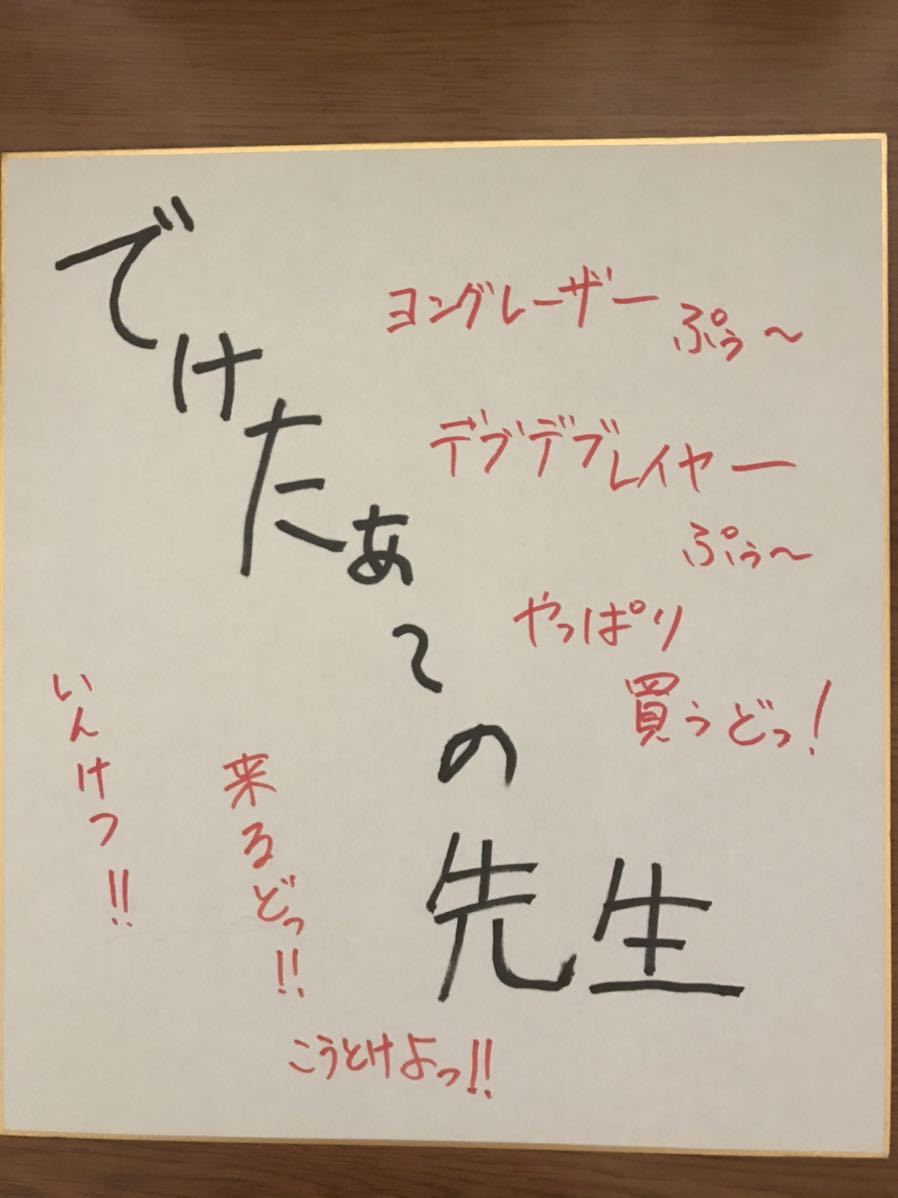 でけたあての先生
ヨングレーザー ぷぅ～
デブデブレイヤー
ぷぅ～
やっぱり
買うどっ!
いんけつ!!
来るどっ!!
こうとけよっ!!